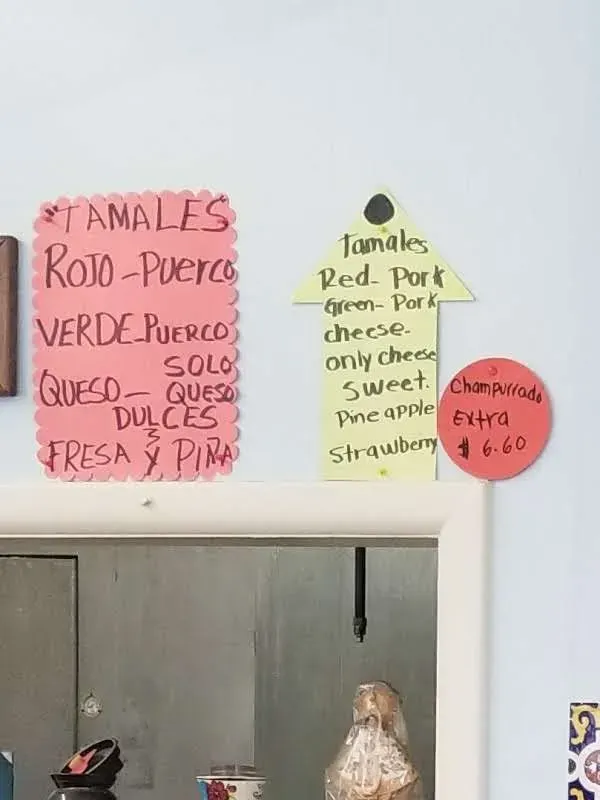 "TAMALES"
ROJO-PUERCO
VERDE-PUERCO
SOLO
QUESO- QUESO
DULCES
FRESA Y PIÑA
Tamales
Red- Pork
Green- Pork
cheese-
only cheese
Sweet.
Pineapple
Strawberry
Champurrado
Extra
$ 6.60